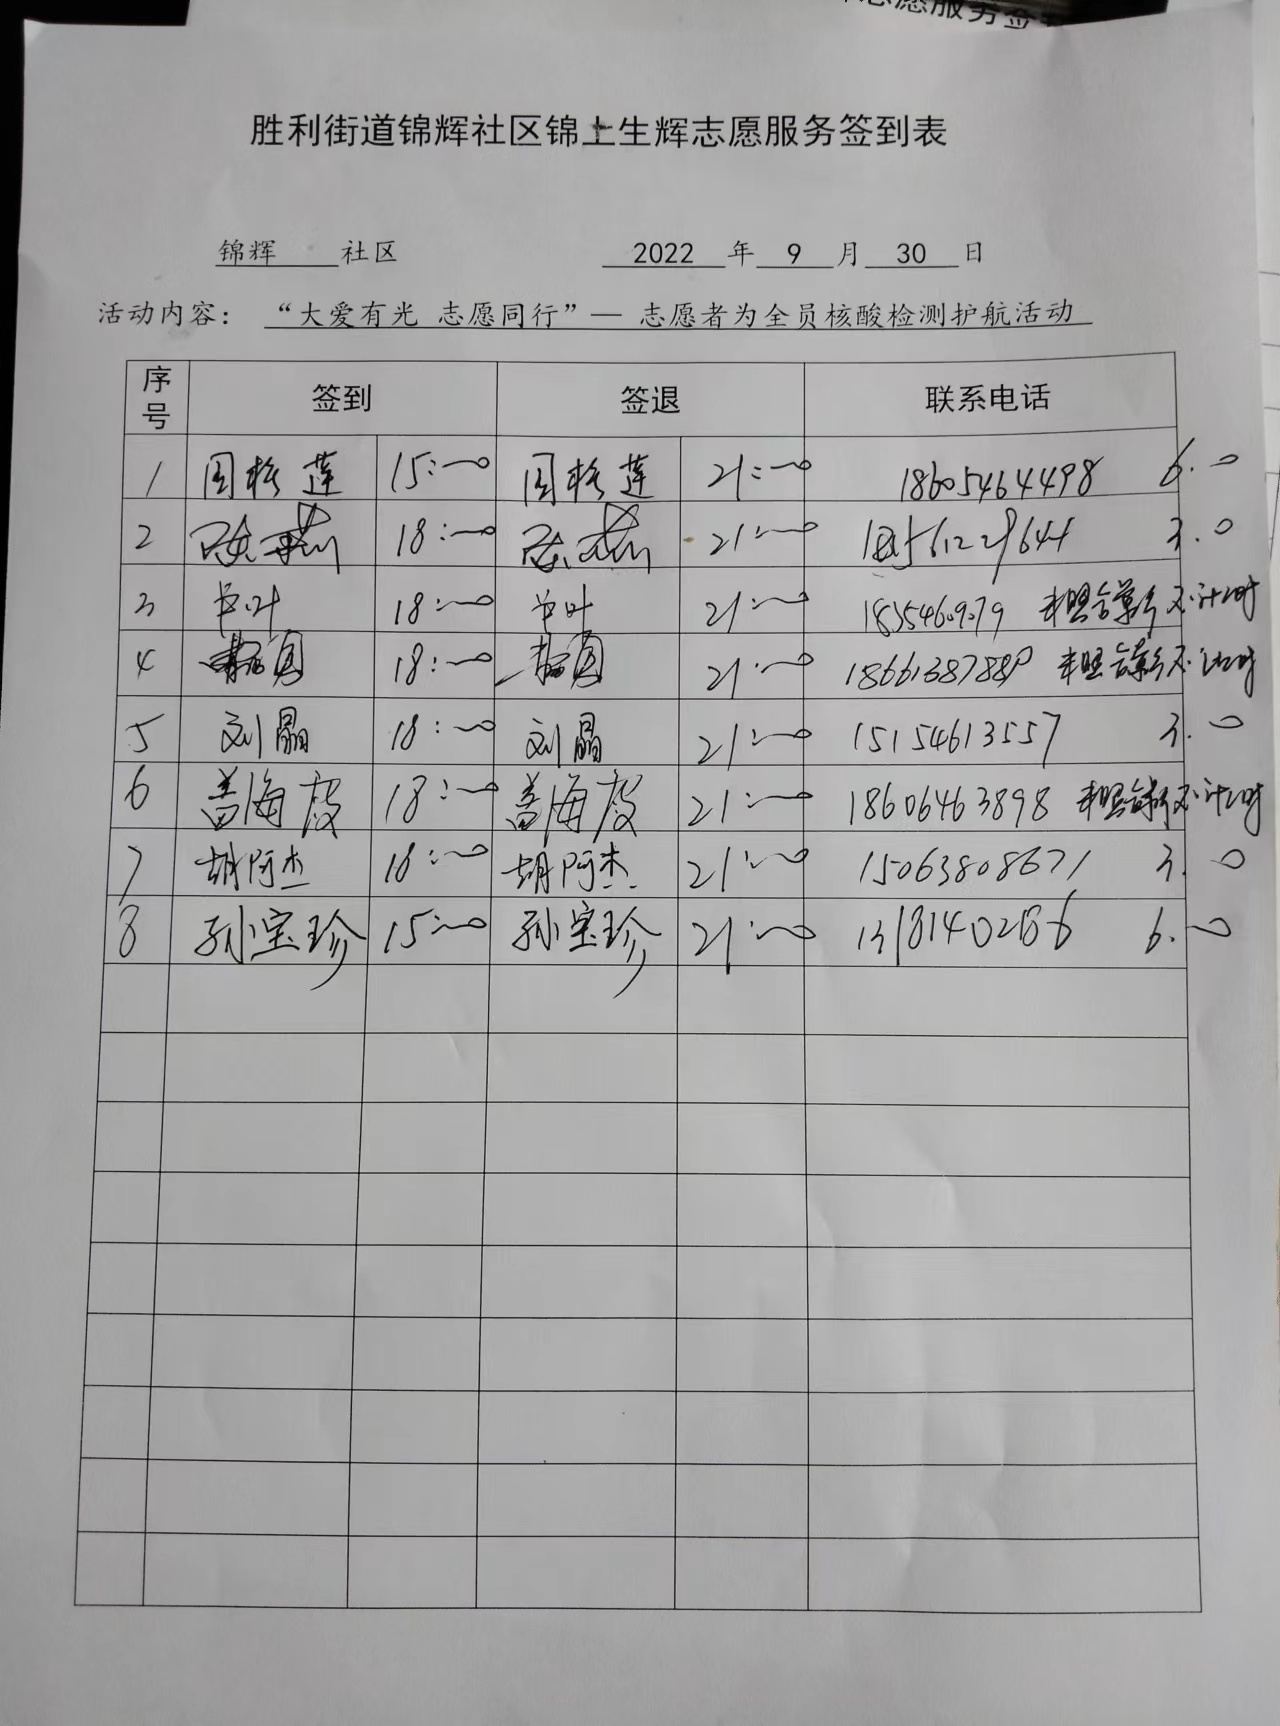 志愿服务签
胜利街道锦辉社区锦上生辉志愿服务签到表
锦辉 社区 2022 年 9 月 30 日
活动内容： “大爱有光 志愿同行”— 志愿者为全员核酸检测护航活动
序号 签到 签退 联系电话
1 周桂莲 15:00 周桂莲 21:00 18605464498 6.0
2 18:00 21:00 3.0
3 叶 18:00 叶 21:00 不计时
4 18:00 21:00 不计时
5 刘晶 18:00 刘晶 21:00 15154613557 3.0
6 海霞 18:00 海霞 21:00 18606463898 不计时
7 胡阿杰 18:00 胡阿杰 21:00 15063808671 3.0
8 孙宝珍 15:00 孙宝珍 21:00 6.0